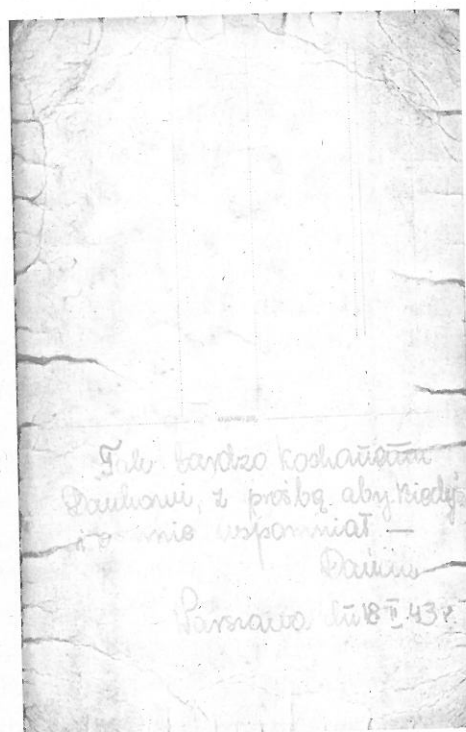 Tak bardzo kochanemu
z prośbą aby kiedyś
i o mnie wspomniał —
Warszawa dn 18 II 43 r